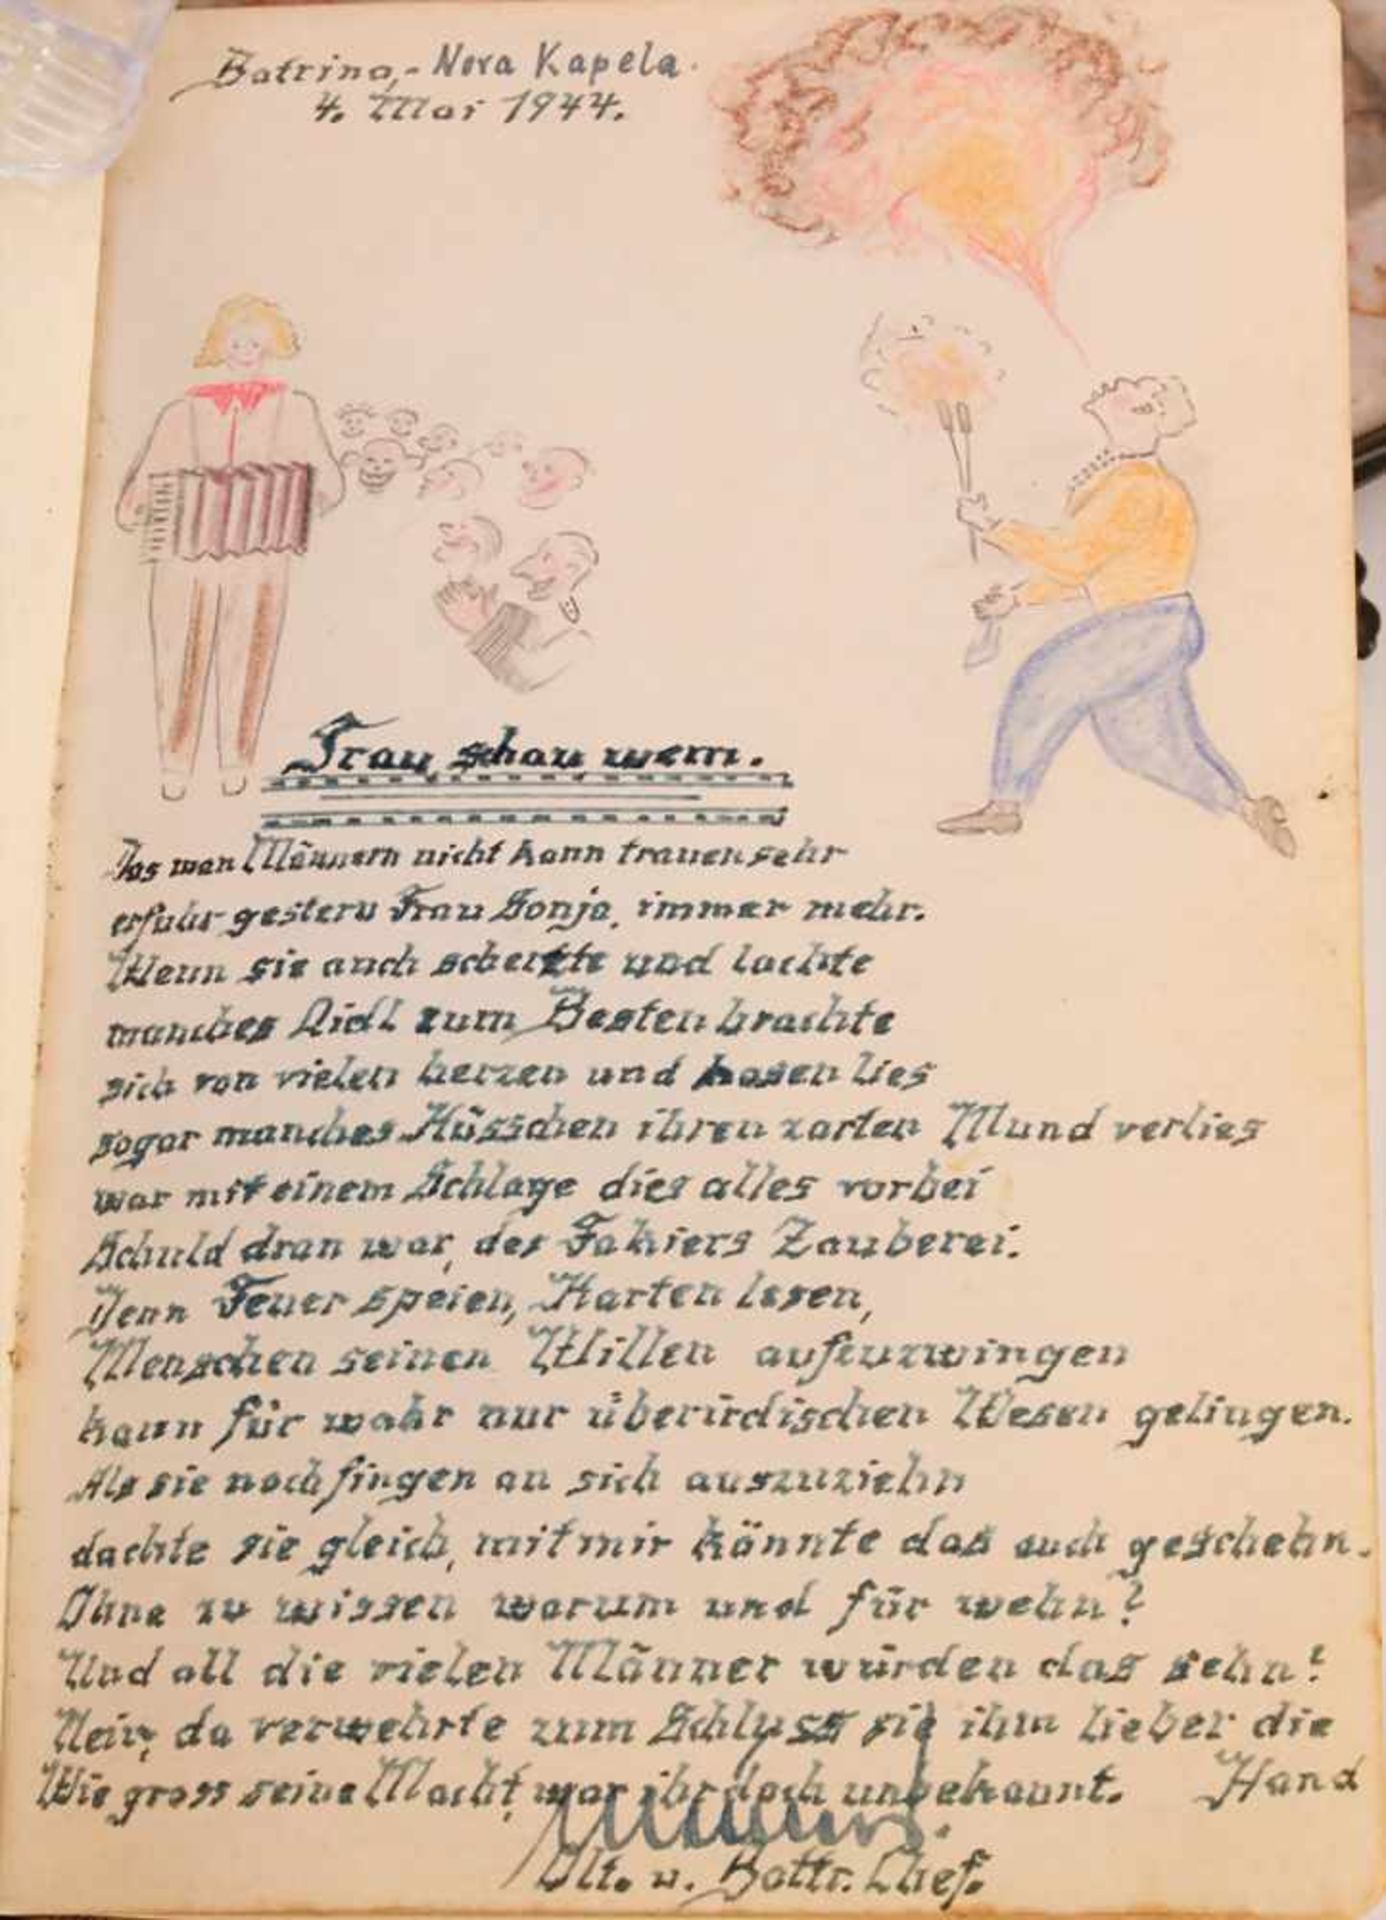 Batrina,- Nova Kapela.
4. Mai 1944.
Trau schau wem.
Das man Männern nicht kann trauen sehr
erfuhr gestern Frau Sonja, immer mehr.
Wenn sie auch scherzte und lachte
manches Lidl zum Besten brachte
sich von vielen herzen und kosen lies
sogar manches Küsschen ihren zarten Mund verlies
war mit einem Schlage dies alles vorbei
Schuld dran war, des Fakiers Zauberei.
Denn Feuer speien, Karten lesen,
Menschen seinen Willen aufzuzwingen
kann für wahr nur überirdischen Wesen gelingen.
Als sie noch fingen an sich auszuziehn
dachte sie gleich, mit mir könnte das auch geschehn.
Ohne zu wissen warum und für wehn?
Und all die vielen Männer würden das sehn!
Nein, da verwehrte zum Schluss sie ihm lieber die Hand
Wie gross seine Macht war ihr doch unbekannt.
Olt. u. Battr. Chef.